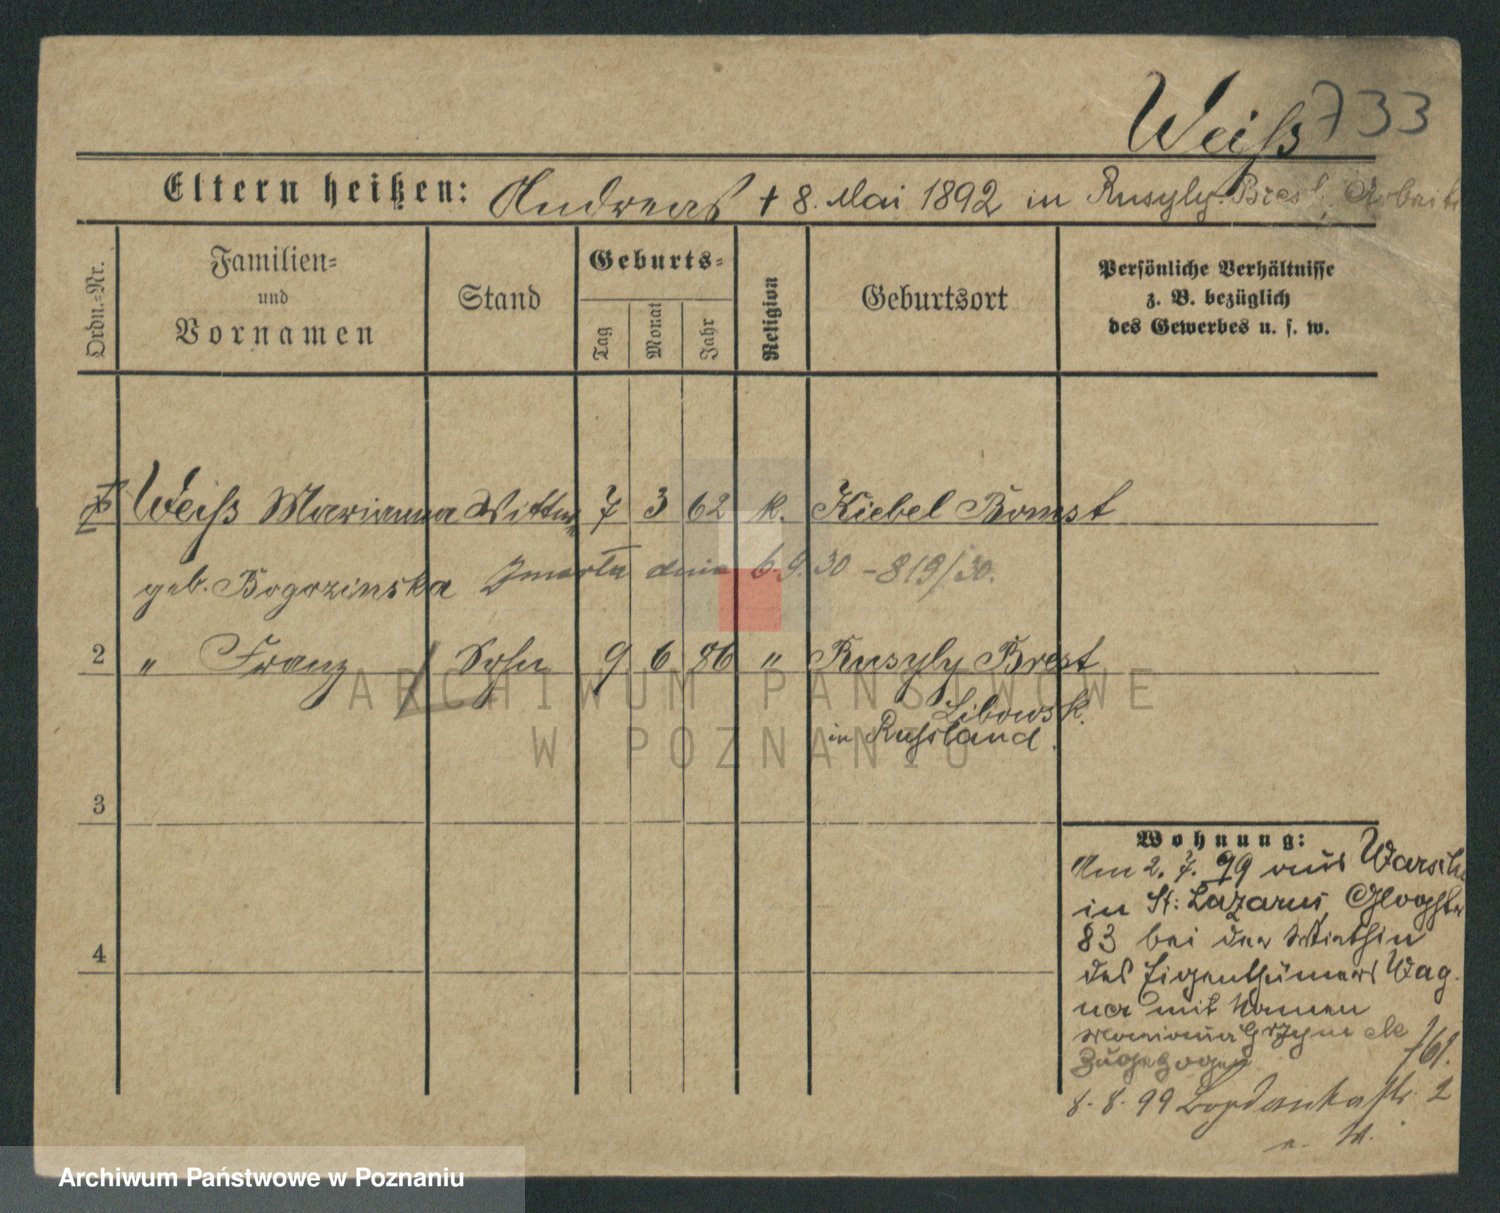 Weiß 733
Eltern heißen: Andreas † 8. Mai 1892 in Rusyly Brest, Arbeit
Ordn.-Nr.
Familien-
und
Vornamen
Stand
Geburts-
Tag
Monat
Jahr
Religion
Geburtsort
Persönliche Verhältnisse
z. B. bezüglich
des Gewerbes u. s. w.
Weiß Marianna Wittwe 7 3 62 k. Kiebel Bomst
geb. Bogozinska Zmarła dnia 6.9.30 - 819/30.
2 " Franz Sohn 9 6 86 " Rusyly Brest
Libowsk.
in Rußland.
3
4
Wohnung:
Am 2. 7. 99 aus Warschau
in St: Lazarus,
83 bei der Wirthin
des Eigenthümers Wag-
ner mit Namen
Marianna
Zugezogen
8. 8. 99 2
ARCHIWUM PAŃSTWOWE
W POZNANIU
Archiwum Państwowe w Poznaniu